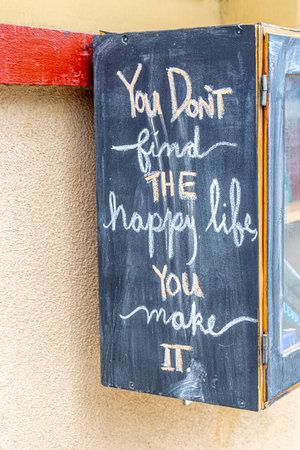 YOU DON'T
find
THE
happy life,
YOU
make
IT.